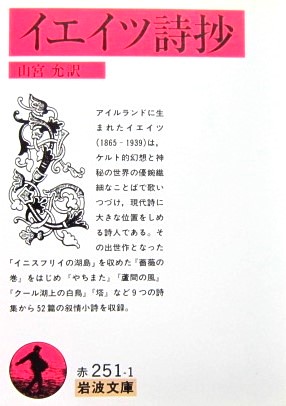 イエイツ詩抄
山宮 允訳
アイルランドに生
まれたイエイツ
(1865‐1939)は,
ケルト的幻想と神
秘の世界の優婉繊
細なことばで歌い
つづけ,現代詩に
大きな位置をしめ
る詩人である。そ
の出世作となった
「イニスフリイの湖島」を収めた『薔薇の
巻』をはじめ『やちまた』『蘆間の風』
『クール湖上の白鳥』『塔』など9つの詩
集から52篇の叙情小詩を収録。
赤 251-1
岩波文庫